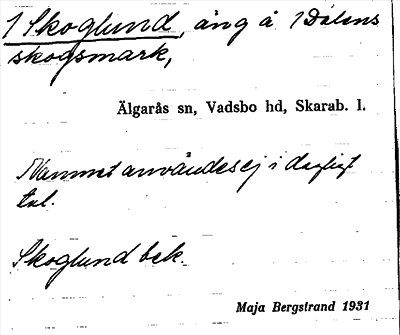 1 Skoglund, äng å 1 Dalens
skogsmark,
Älgarås sn, Vadsbo hd, Skarab. l.
Namnet användes ej i dagligt
tal.
Skoglund bek.
Maja Bergstrand 1931